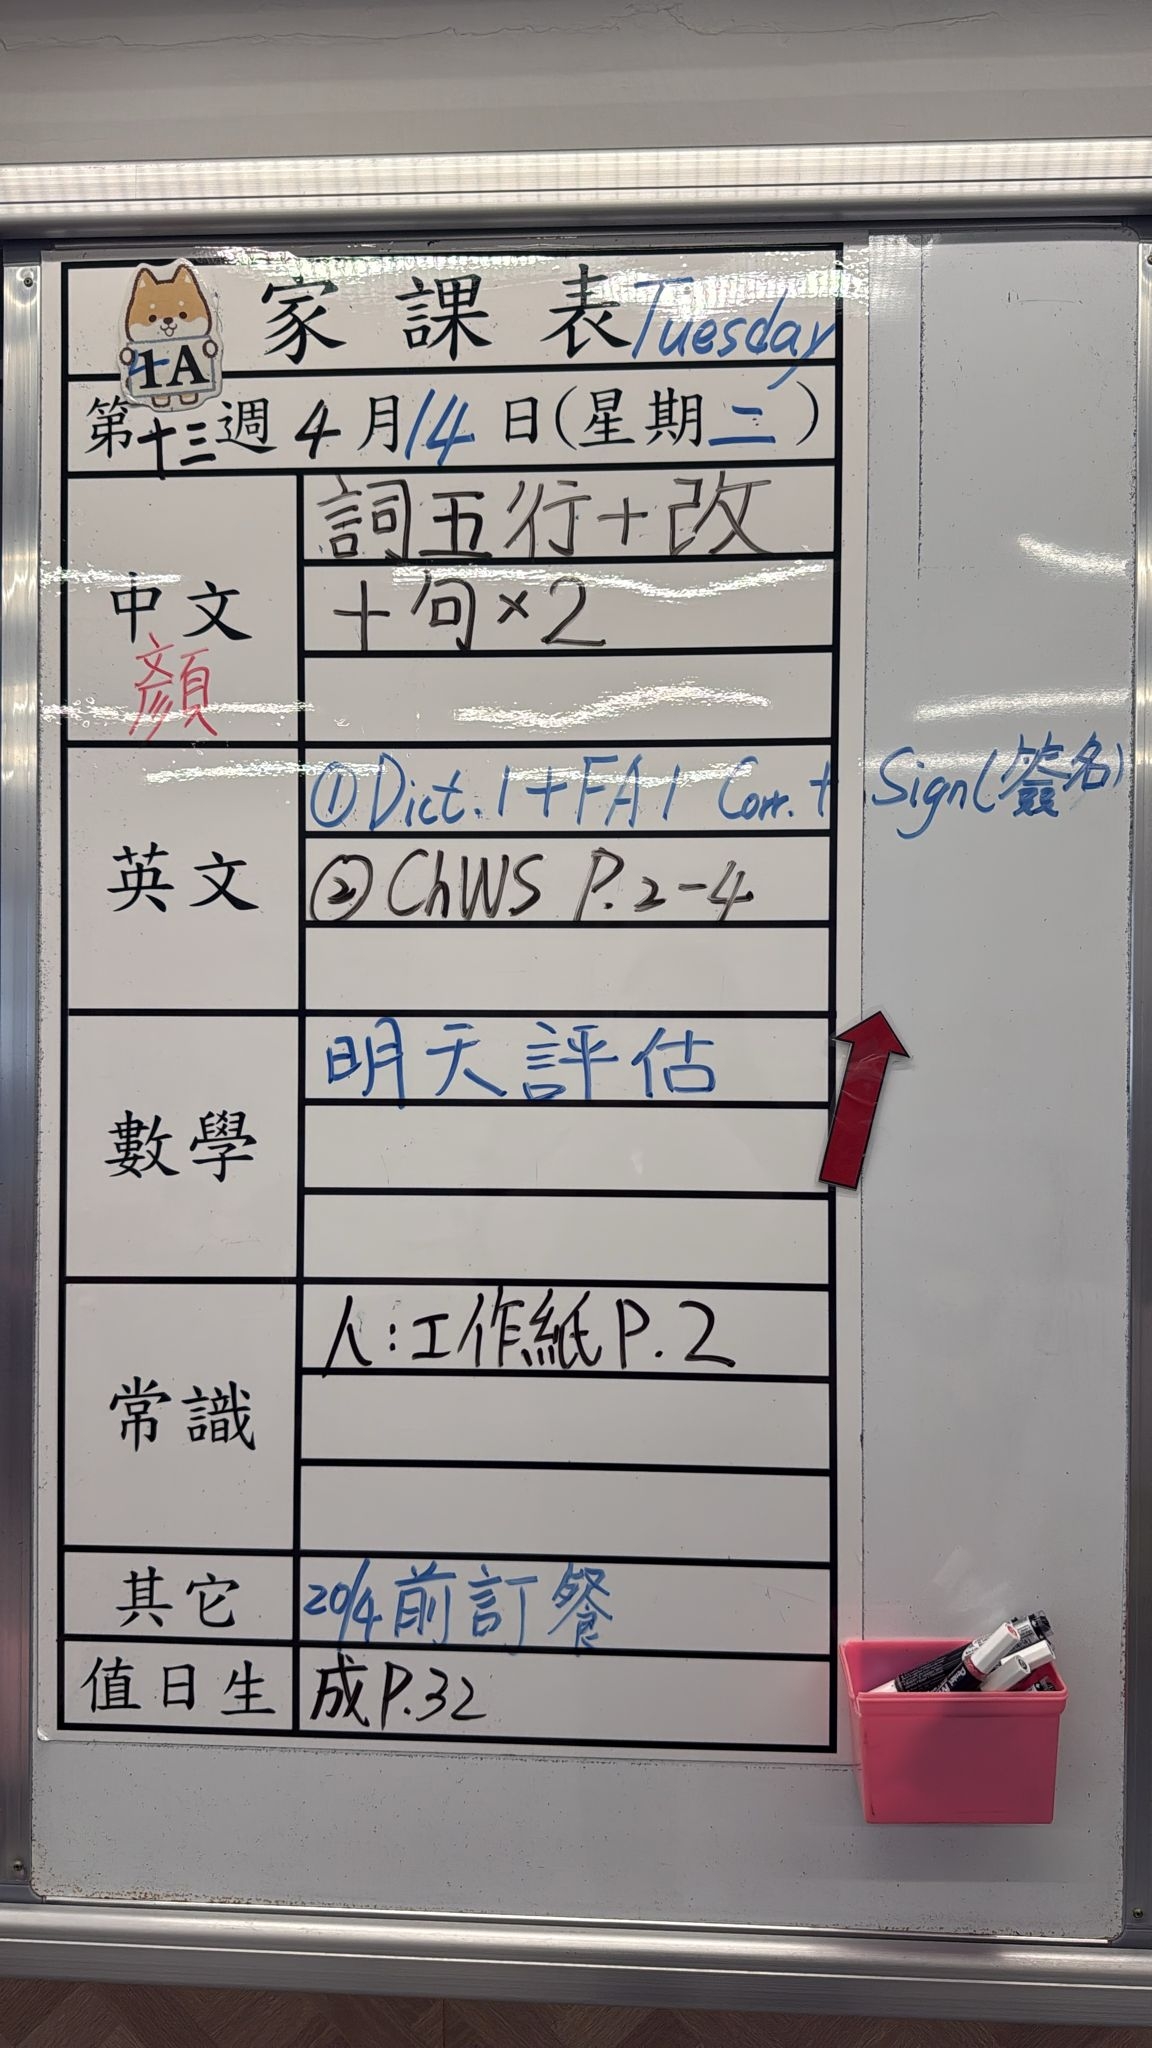 家課表 Tuesday
1A
第十三週 4月14日(星期二)
中文
顏
詞五行+改
十句×2
英文
①Dict.1+FA1 Corr.+ Sign(簽名)
②ChWS P.2-4
數學
明天評估
常識
人:工作紙P.2
其它
20/4前訂餐
值日生
成P.32